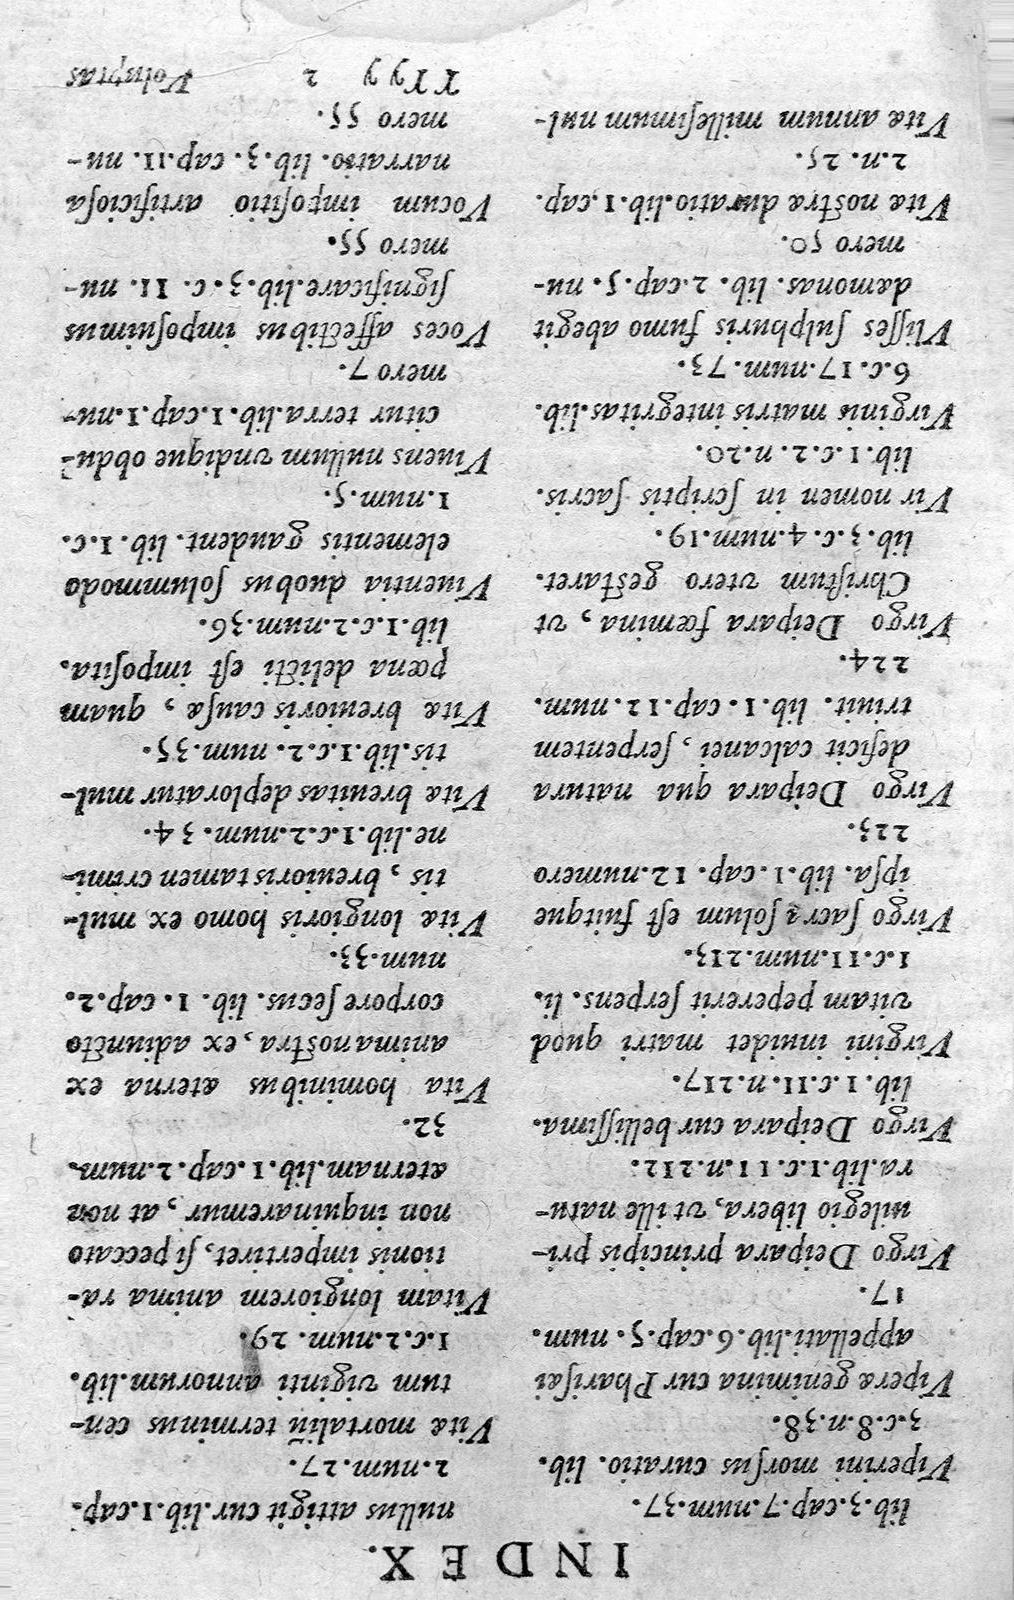 INDEX.
lib.3.cap.7.num.37.
Viperini morſus curatio. lib.
3.c.8.n.38.
Vipera genimina cur Phariſai
appellati.lib.6.cap.5. num.
17.
Virgo Deipara principis pri-
uilegio libera, vt ille natu-
ra.lib.1.c.11.n.212.
Virgo Deipara cur belliſſima.
lib.1.c.11.n.217.
Virgini inuidet matri quod
vitam pepererit ſerpens. li.
1.c.11.num.213.
Virgo ſacra ſolum eſt fuitque
ipſa. lib.1.cap. 12.numero
223.
Virgo Deipara qua natura
deficit calcanei, ſerpentem
triuit. lib.1. cap.12.num.
224.
Virgo Deipara fœmina, vt
Chriſtum vtero geſtaret.
lib.3.c.4.num.19.
Vir nomen in ſcriptis ſacris.
lib.1.c.2. n.20.
Virginis matris integritas.lib.
6.c.17.num.73.
Vliſſes ſulphuris fumo abegit
dæmonas. lib. 2.cap.5. nu-
mero 50.
Vita noſtra duratio.lib.1.cap.
2.n. 25.
Vita annum milleſimum nul-
nullus attigit cur.lib.1.cap.
2.num.27.
Vita mortaliũ terminus cen-
tum viginti annorum.lib.
1.c.2.num. 29.
Vitam longiorem anima ra-
tionis impertiret, ſi peccato
non inquinaremur, at non
æternam.lib.1.cap.2.num.
32.
Vita hominibus æterna ex
anima noſtra, ex adiuncto
corpore ſecus. lib. 1. cap.2.
num.33.
Vita longioris homo ex mul-
tis, breuioris tamen crimi-
ne.lib.1.c.2.num. 34.
Vita breuitas deploratur mul-
tis.lib.1.c.2. num.35.
Vita breuioris cauſa, quam
pœna delicti eſt impoſita.
lib.1.c.2.num.36.
Viuentia duobus ſolummodo
elementis gaudent. lib.1.c.
1.num.5.
Viuens nullum vndique obdu-
citur terra.lib.1.cap.1.nu-
mero 7.
Voces affectibus impoſuimus
ſignificare.lib.3.c. 11. nu-
mero 55.
Vocum impoſitio artificioſa
narratio. lib.3. cap.11. nu-
mero 55.
YYyy 2 Voluptas